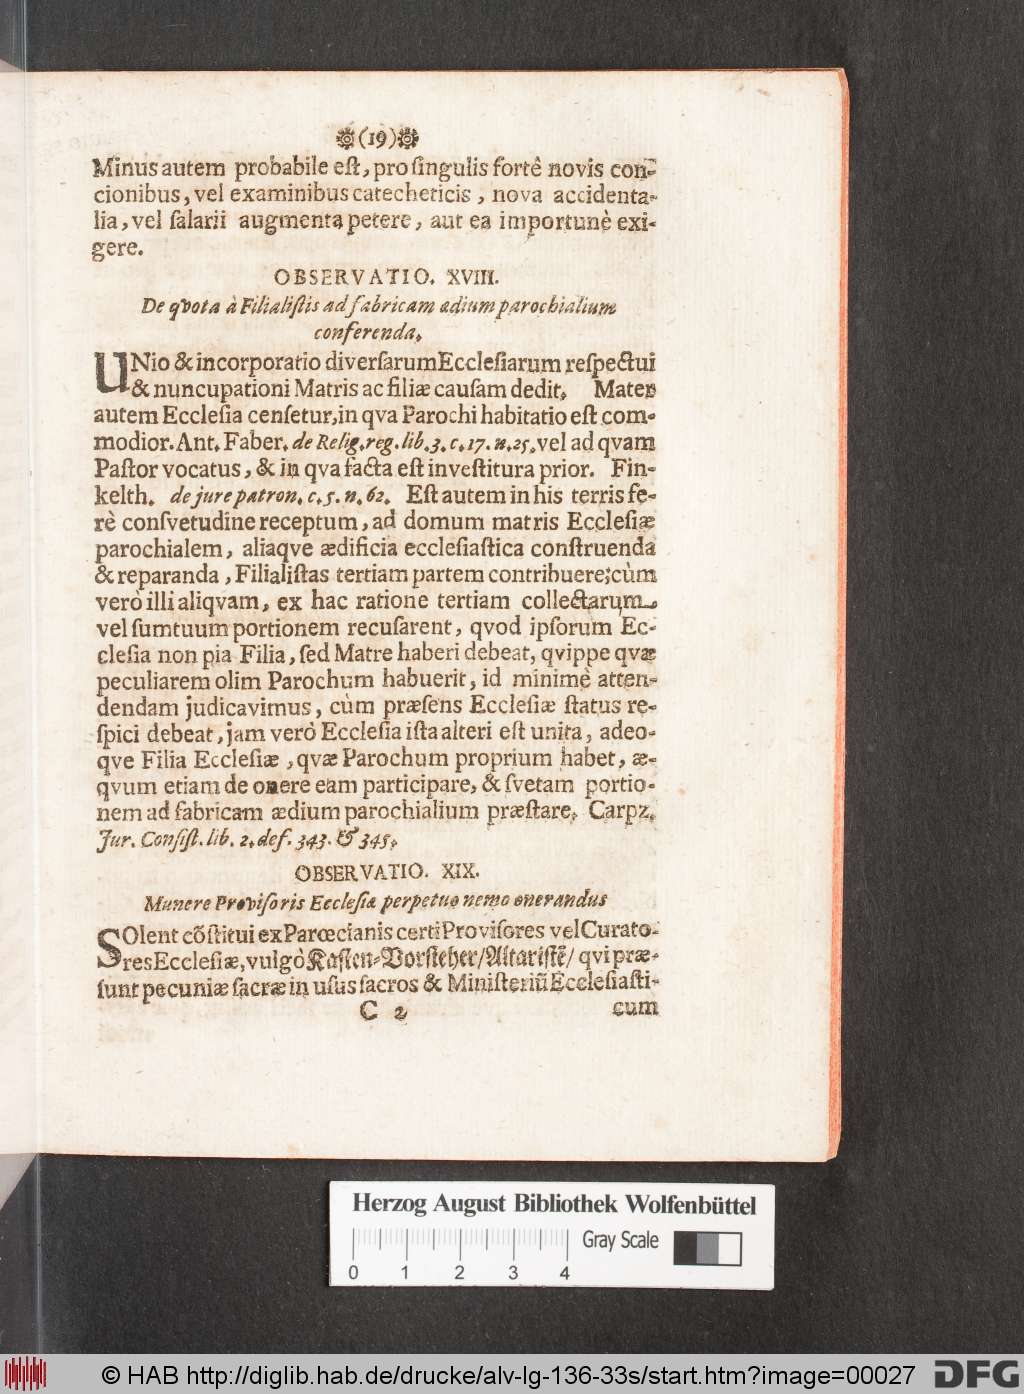 (19)
Minus autem probabile eſt, pro ſingulis fortê novis con-
cionibus, vel examinibus catecheticis, nova accidenta-
lia, vel ſalarii augmenta petere, aut ea importunè exi-
gere.
OBSERVATIO. XVIII.
De qvota à Filialiſtis ad fabricam ædium parochialium
conferenda.
UNio & incorporatio diverſarum Eccleſiarum reſpectui
& nuncupationi Matris ac filiæ cauſam dedit. Mater
autem Eccleſia cenſetur, in qva Parochi habitatio eſt com-
modior. Ant. Faber. de Relig. reg. lib. 3. c. 17. n. 25. vel ad qvam
Paſtor vocatus, & in qva facta eſt inveſtitura prior. Fin-
kelth. de jure patron. c. 5. n. 62. Eſt autem in his terris fe-
rè conſvetudine receptum, ad domum matris Eccleſiæ
parochialem, aliaqve ædificia eccleſiaſtica conſtruenda
& reparanda, Filialiſtas tertiam partem contribuere: cùm
verò illi aliqvam, ex hac ratione tertiam collectarum
vel ſumtuum portionem recuſarent, qvod ipſorum Ec-
cleſia non pia Filia, ſed Matre haberi debeat, qvippe qvæ
peculiarem olim Parochum habuerit, id minimè atten-
dendam judicavimus, cùm præſens Eccleſiæ ſtatus re-
ſpici debeat, jam verò Eccleſia iſta alteri eſt unita, adeo-
qve Filia Eccleſiæ, qvæ Parochum proprium habet, æ-
qvum etiam de onere eam participare, & ſvetam portio-
nem ad fabricam ædium parochialium præſtare. Carpz.
Jur. Conſiſt. lib. 2. def. 343. & 345.
OBSERVATIO. XIX.
Munere Proviſoris Eccleſiæ perpetuo nemo onerandus
SOlent cõſtitui ex Parœcianis certi Proviſores vel Curato-
res Eccleſiæ, vulgò Kaſten-Vorſteher/ Altariſtẽ/ qvi præ-
ſunt pecuniæ ſacræ in uſus ſacros & Miniſteriũ Eccleſiaſti-
C 2 cum
Herzog August Bibliothek Wolfenbüttel
0 1 2 3 4 Gray Scale
© HAB http://diglib.hab.de/drucke/alv-lg-136-33s/start.htm?image=00027 DFG